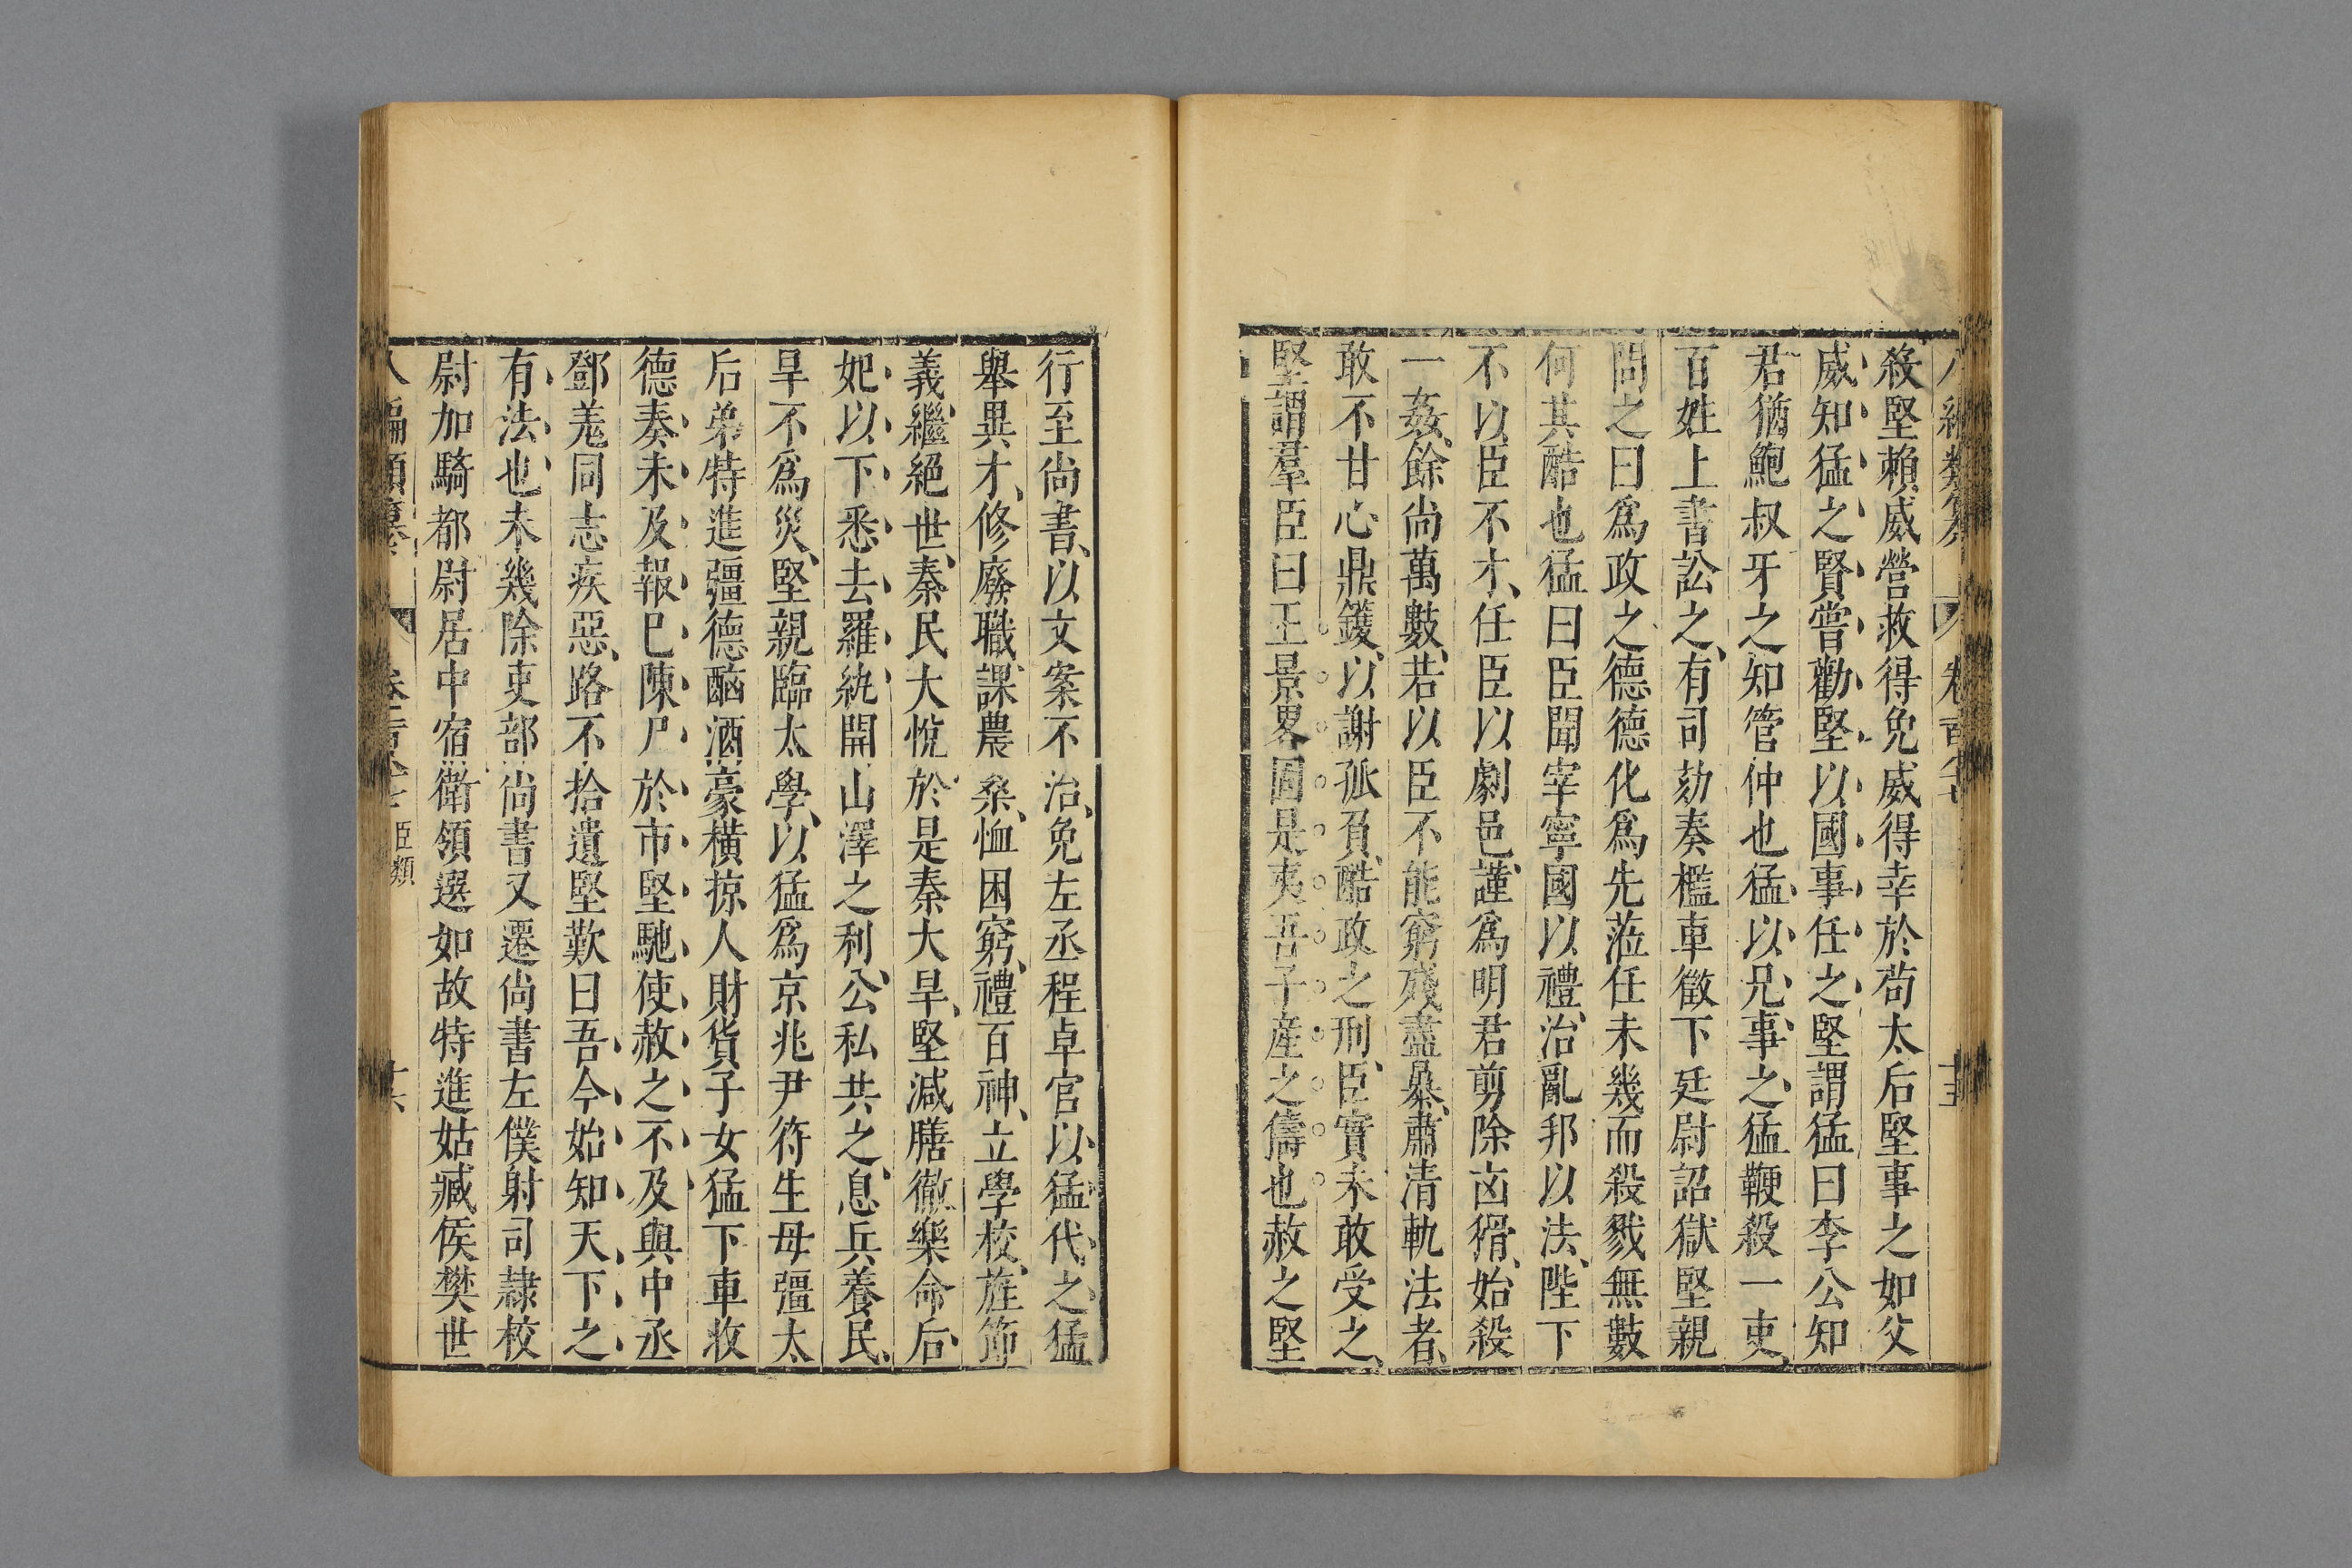 殺堅賴威營救得免威得幸於苟太后堅事之如父
威知猛之賢嘗勸堅以國事任之堅謂猛曰李公知
君猶鮑叔牙之知管仲也猛以兄事之猛鞭殺一吏
百姓上書訟之有司劾奏檻車徵下廷尉詔獄堅親
問之曰爲政之德德化爲先蒞任未幾而殺戮無數
何其酷也猛曰臣聞宰寧國以禮治亂邦以法陛下
不以臣不才任臣以劇邑謹爲明君剪除凶猾始殺
一姦餘尚萬數若以臣不能窮殘盡暴肅清軌法者
敢不甘心鼎鑊以謝孤負酷政之刑臣實未敢受之
堅謂羣臣曰王景畧固是夷吾子產之儔也赦之堅
行至尚書以文案不治免左丞程卓官以猛代之猛
舉異才修廢職課農桑恤困窮禮百神立學校旌節
義繼絕世秦民大悅於是秦大旱堅減膳徹樂命后
妃以下悉去羅紈開山澤之利公私共之息兵養民
旱不爲災堅親臨太學以猛爲京兆尹符生母彊太
后弟特進彊德酗酒豪橫掠人財貨子女猛下車收
德奏未及報巳陳尸於市堅馳使赦之不及與中丞
鄧羌同志疾惡路不拾遺堅歎曰吾今始知天下之
有法也未幾除吏部尚書又遷尚書左僕射司隷校
尉加騎都尉居中宿衛領選如故特進姑臧侯樊世
八編類纂 臣類 十六